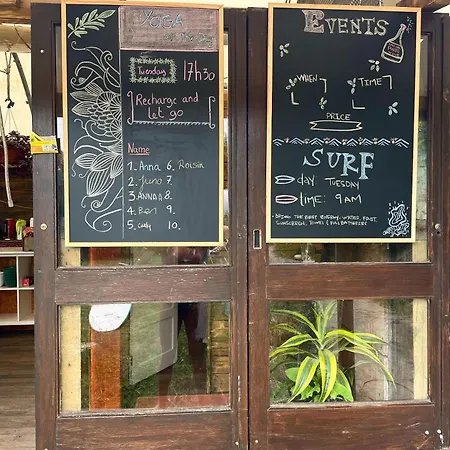 YOGA
of the Day
Tuesday 17h30
Recharge and
let go
Name
1. Anna 6. Roisin
2. Juno 7.
3. ANNAH 8
4. Ben 9.
5. Cally 10.
EVENTS
WHEN
TIME
PRICE
SURF
DAY: TUESDAY
TIME: 9AM
BRING THE BEST ENERGY, WATER, FOOD,
SUNSCREEN, TOWEL & FULL BATTERIES